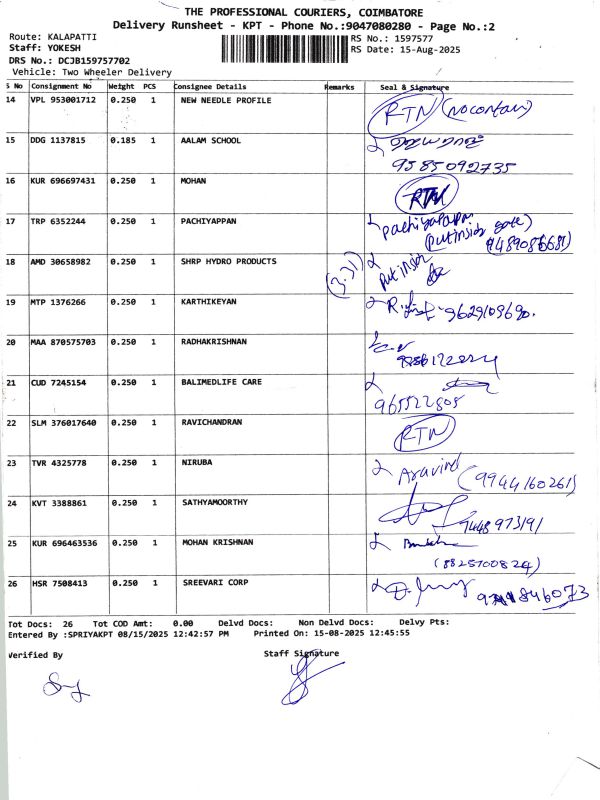 THE PROFESSIONAL COURIERS, COIMBATORE
Delivery Runsheet - KPT - Phone No.:9047080280 - Page No.:2
Route: KALAPATTI
Staff: YOKESH
DRS No.: DCJB159757702
Vehicle: Two Wheeler Delivery
RS No.: 1597577
RS Date: 15-Aug-2025
S No Consignment No Weight PCS Consignee Details Remarks Seal & Signature
14 VPL 953001712 0.250 1 NEW NEEDLE PROFILE RTN
15 DDG 1137815 0.185 1 AALAM SCHOOL
9585092735
16 KUR 696697431 0.250 1 MOHAN RTN
17 TRP 6352244 0.250 1 PACHIYAPPAN
(Put inside gate)
18 AMD 30658982 0.250 1 SHRP HYDRO PRODUCTS (3.31) Put inside
19 MTP 1376266 0.250 1 KARTHIKEYAN 9629109690.
20 MAA 870575703 0.250 1 RADHAKRISHNAN
21 CUD 7245154 0.250 1 BALIMEDLIFE CARE
22 SLM 376017640 0.250 1 RAVICHANDRAN RTN
23 TVR 4325778 0.250 1 NIRUBA Aravind (9944160261)
24 KVT 3388861 0.250 1 SATHYAMOORTHY
9448973191
25 KUR 696463536 0.250 1 MOHAN KRISHNAN
(8825700824)
26 HSR 7508413 0.250 1 SREEVARI CORP
Tot Docs: 26 Tot COD Amt: 0.00 Delvd Docs: Non Delvd Docs: Delvy Pts:
Entered By :SPRIYAKPT 08/15/2025 12:42:57 PM Printed On: 15-08-2025 12:45:55
Verified By Staff Signature